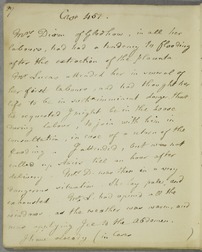 Case 461.
Mrs. Dixon of , in all her
labours, had had a tendency to flooding
after the extraction of the Placenta
Mr. Lucas attended her in several of
her first labours, and had thought her
life to be in such imminent danger, that
he requested I might be in the house
during labour, to join with him in
consultation, in case of a return of the
flooding. I attended, but was not
called up till an hour after
delivery. Mrs. D. was then in a very
dangerous situation. She lay pale, and
exhausted. Mr. L. had opened all the
windows as the weather was warm, and
was applying to the Abdomen.
(in